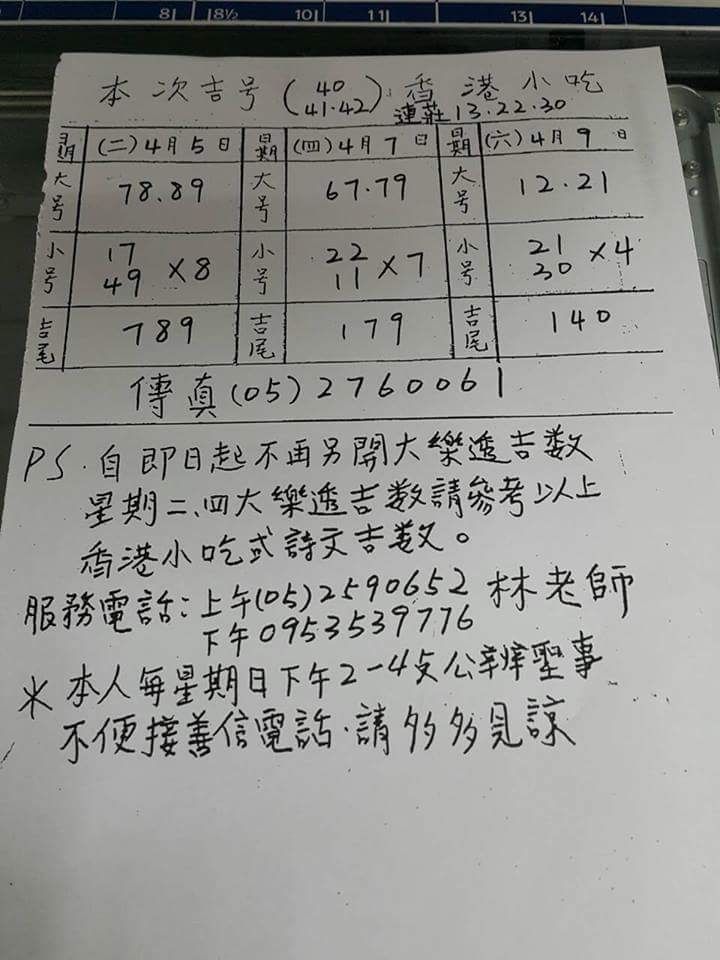 8 8½ 10 11 13 14
本次吉号(40 41·42) 香港小吃
連莊 13.22.30
星期 (二)4月5日 星期 (四)4月7日 星期 (六)4月9日
大号 78.89 大号 67.79 大号 12.21
小号 17 49 ×8 小号 22 11 ×7 小号 21 30 ×4
吉尾 789 吉尾 179 吉尾 140
傳真(05)2760061
PS.自即日起不再另開大樂透吉数
星期二、四大樂透吉数請參考以上
香港小吃或詩文吉数。
服務電話:上午(05)2590652 林老師
下午0953539776
*本人每星期日下午2-4点公辦聖事
不便接善信電話.請多多見諒